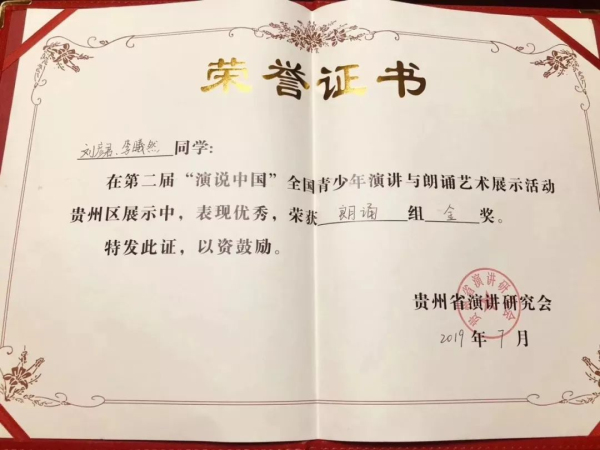 荣誉证书
刘君、李曦然 同学:
在第二届“演说中国”全国青少年演讲与朗诵艺术展示活动
贵州区展示中，表现优秀，荣获 朗诵 组 金 奖。
特发此证，以资鼓励。
贵州省演讲研究会
2019年7月